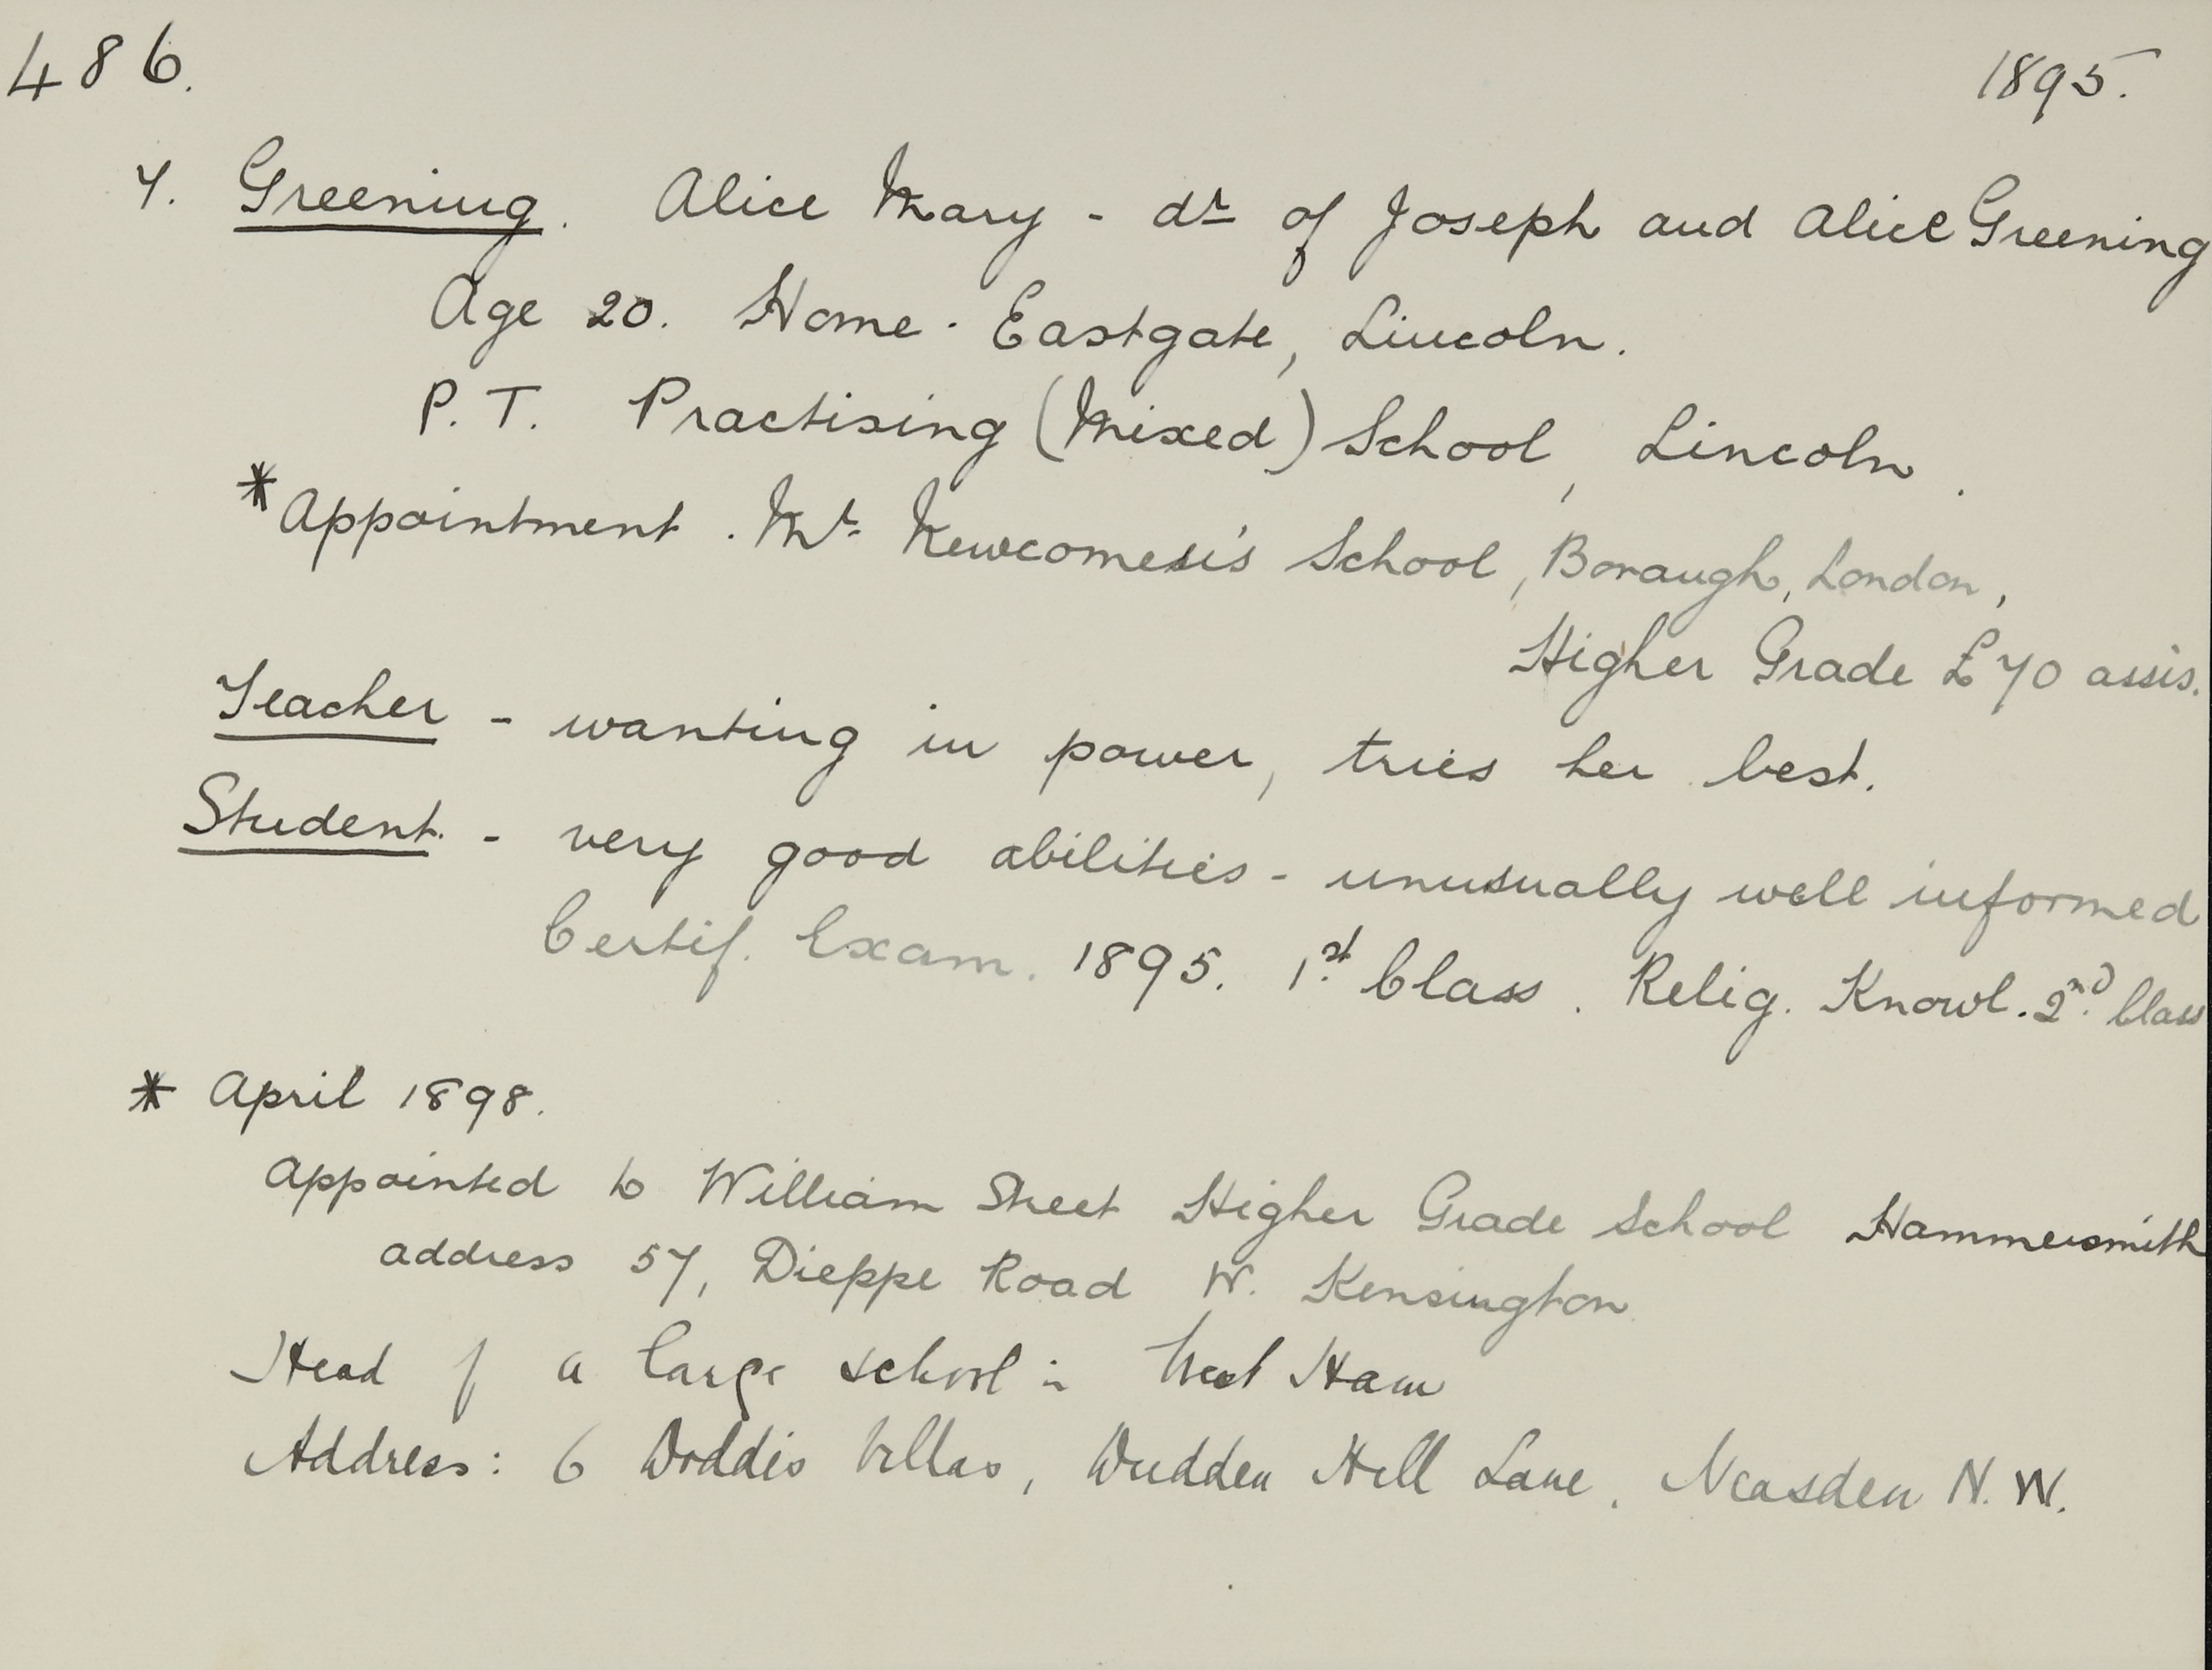 486.
1895.
7. Greening. Alice Mary - dr of Joseph and Alice Greening
Age 20. Home - Eastgate, Lincoln.
P.T. Practising (Mixed) School, Lincoln.
*Appointment. Mr Newcomen's School, Borough, London,
Higher Grade £70 assis.
Teacher - wanting in power, tries her best.
Student. - very good abilities - unusually well informed
Certif. Exam. 1895. 1st Class. Relig. Knowl. 2nd Class
* April 1898.
Appointed to William Street Higher Grade School Hammersmith
address 57, Dieppe Road W. Kensington
Head of a large school in West Ham
Address: 6 Villas, Dudden Hill Lane, Neasden N.W.